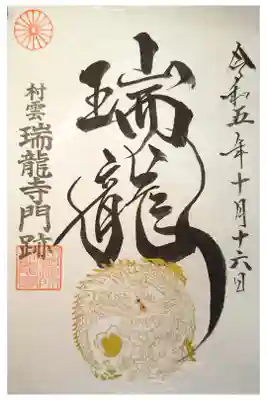 令和五年十月十六日
瑞龍
村雲
瑞龍寺門跡